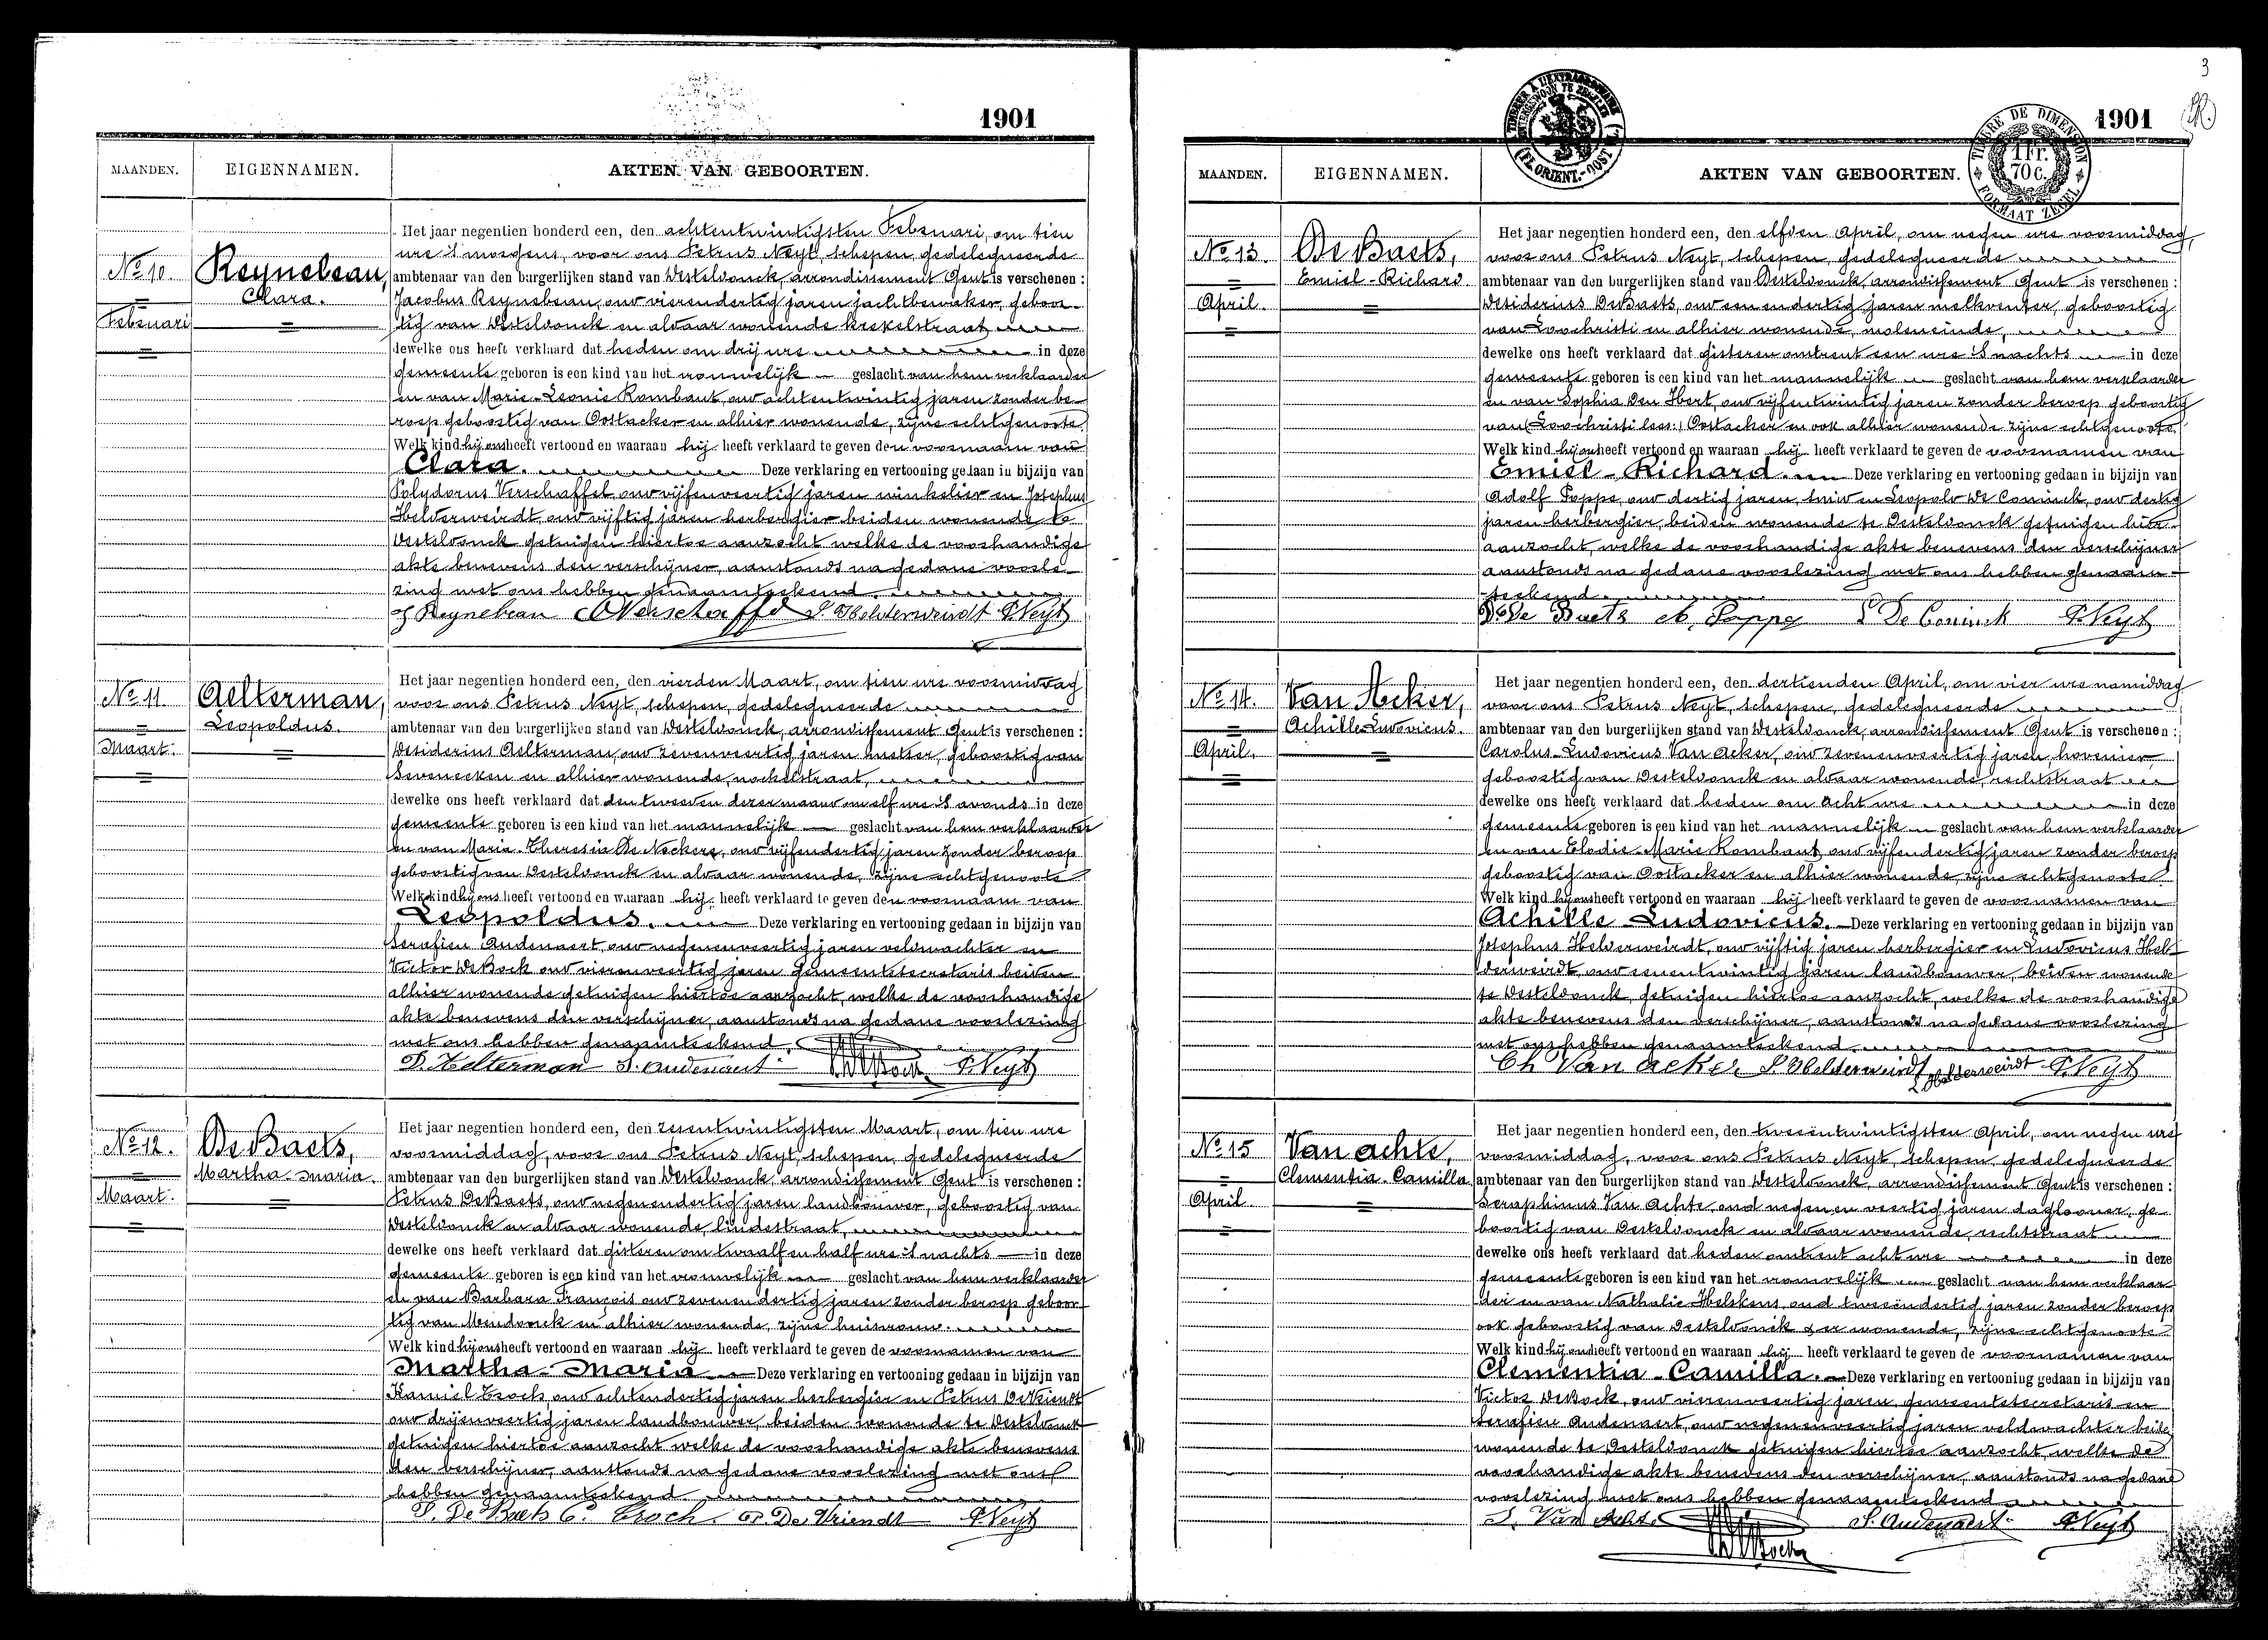 1901
MAANDEN. EIGENNAMEN. AKTEN VAN GEBOORTEN.
No 10. Reynebeau, Clara.
Februari
Het jaar negentien honderd een, den achtentwintigsten Februari, om tien
ure 's morgens, voor ons Petrus Neyt, schepen, gedelegueerde
ambtenaar van den burgerlijken stand van Desteldonck, arrondissement Gent is verschenen :
Jacobus Reynebeau, oud vierendertig jaren jachtbewaker, geboor-
tig van Desteldonck en aldaar wonende krekelstraat
dewelke ons heeft verklaard dat heden om drij ure in deze
gemeente geboren is een kind van het vrouwelijk geslacht van hem verklaarder
en van Marie-Leonie Rombaut, oud achtentwintig jaren zonder be-
roep geboortig van Oostacker en alhier wonende, zijne echtgenoote.
Welk kind hij ons heeft vertoond en waaraan hij heeft verklaard te geven den voornaam van
Clara. Deze verklaring en vertooning gedaan in bijzijn van
Polydorus Verschaffel, oud vijfenveertig jaren winkelier en Josephus
Helderweirdt, oud vijftig jaren herbergier beiden wonende te
Desteldonck getuigen hiertoe aanzocht welke de voorhandige
akte benevens den verschijner, aanstonds na gedane voorle-
zing met ons hebben genaamteekend.
J Reynebeau Verschaffel J. Helderweirdt P. Neyt
No 11. Aelterman, Leopoldus.
Maart.
Het jaar negentien honderd een, den vierden Maart, om tien ure voormiddag
voor ons Petrus Neyt, schepen, gedelegueerde
ambtenaar van den burgerlijken stand van Desteldonck, arrondissement Gent is verschenen :
Desiderius Aelterman, oud zevenveertig jaren, geboortig van
Sevenecken en alhier wonende, nockelstraat,
dewelke ons heeft verklaard dat den tweeden dezer maand om elf ure 's avonds in deze
gemeente geboren is een kind van het mannelijk geslacht van hem verklaarder
en van Maria-Theresia De Neckere, oud vijfendertig jaren zonder beroep
geboortig van Desteldonck en aldaar wonende, zijne echtgenoote
Welk kind hij ons heeft vertoond en waaraan hij heeft verklaard te geven den voornaam van
Leopoldus. Deze verklaring en vertooning gedaan in bijzijn van
Serafien Audenaert, oud negenenveertig jaren veldwachter en
Victor De Bock oud vierenveertig jaren gemeentesecretaris beiden
alhier wonende getuigen hiertoe aanzocht, welke de voorhandige
akte benevens den verschijner, aanstonds na gedane voorlezing
met ons hebben genaamteekend.
D. Aelterman S. Audenaert V De Bock P. Neyt
No 12. De Baets, Martha-Maria.
Maart.
Het jaar negentien honderd een, den zesentwintigsten Maart, om tien ure
voormiddag, voor ons Petrus Neyt, schepen, gedelegueerde
ambtenaar van den burgerlijken stand van Desteldonck, arrondissement Gent is verschenen :
Petrus De Baets, oud negenendertig jaren landbouwer, geboortig van
Desteldonck en aldaar wonende, lindestraat,
dewelke ons heeft verklaard dat gisteren om twaalf en half ure 's nachts in deze
gemeente geboren is een kind van het vrouwelijk geslacht van hem verklaarder
en van Barbara François oud zevenendertig jaren zonder beroep geboor-
tig van Mendonck en alhier wonende, zijne huisvrouw.
Welk kind hij ons heeft vertoond en waaraan hij heeft verklaard te geven de voornamen van
Martha-Maria Deze verklaring en vertooning gedaan in bijzijn van
Kamiel Croch, oud achtendertig jaren herbergier en Petrus De Vriendt
oud drijenveertig jaren landbouwer, beiden wonende te Desteldonck
getuigen hiertoe aanzocht welke de voorhandige akte benevens
den verschijner, aanstonds na gedane voorlezing met ons
hebben genaamteekend
P. De Baets C. Croch. P. De Vriendt P. Neyt
3
1901
TIMBRE DE DIMENSION
1 Fr. 70 c.
FORMAAT ZEGEL
TIMBRE A L'EXTRAORDINAIRE
(FL. ORIENT.-OOST VL.)
MAANDEN. EIGENNAMEN. AKTEN VAN GEBOORTEN.
No 13. De Baets, Emiel-Richard.
April.
Het jaar negentien honderd een, den elfden April, om negen ure voormiddag,
voor ons Petrus Neyt, schepen, gedelegueerde
ambtenaar van den burgerlijken stand van Desteldonck, arrondissement Gent is verschenen :
Desiderius De Baets, oud eenendertig jaren melkventer, geboortig
van Loochristi en alhier wonende, moleneinde,
dewelke ons heeft verklaard dat gisteren omtrent een ure 's nachts in deze
gemeente geboren is een kind van het mannelijk geslacht van hem verklaarder
en van Sophia Den Hert, oud vijfentwintig jaren zonder beroep geboortig
van (Loochristi lees:) Oostacker en ook alhier wonende zijne echtgenoote.
Welk kind hij ons heeft vertoond en waaraan hij heeft verklaard te geven de voornamen van
Emiel-Richard. Deze verklaring en vertooning gedaan in bijzijn van
Adolf Poppe, oud dertig jaren, smid en Leopold De Coninck, oud dertig
jaren herbergier, beiden wonende te Desteldonck getuigen hier-
aanzocht, welke de voorhandige akte benevens den verschijner
aanstonds na gedane voorlezing met ons hebben genaam-
teekend
D. De Baets A. Poppe L De Coninck P. Neyt
No 14. Van Acker, Achille Ludovicus.
April.
Het jaar negentien honderd een, den dertienden April, om vier ure namiddag
voor ons Petrus Neyt, schepen, gedelegueerde
ambtenaar van den burgerlijken stand van Desteldonck, arrondissement Gent is verschenen :
Carolus-Ludovicus Van Acker, oud zevenenveertig jaren, hovenier
geboortig van Desteldonck en aldaar wonende, rechtstraat
dewelke ons heeft verklaard dat heden om acht ure in deze
gemeente geboren is een kind van het mannelijk geslacht van hem verklaarder
en van Elodie-Marie Rombaut, oud vijfendertig jaren zonder beroep
geboortig van Oostacker en alhier wonende, zijne echtgenoote.
Welk kind hij ons heeft vertoond en waaraan hij heeft verklaard te geven de voornamen van
Achille Ludovicus. Deze verklaring en vertooning gedaan in bijzijn van
Josephus Helderweirdt, oud vijftig jaren herbergier en Ludovicus Hel-
derweirdt, oud eenentwintig jaren landbouwer, beiden wonende
te Desteldonck, getuigen hiertoe aanzocht, welke de voorhandige
akte benevens den verschijner, aanstonds na gedane voorlezing
met ons hebben genaamteekend
Ch Van acker J. Helderweirdt L Helderweirdt P. Neyt
No 15 Van Achte, Clementia-Camilla
April
Het jaar negentien honderd een, den tweeëntwintigsten April, om negen ure
voormiddag, voor ons Petrus Neyt, schepen, gedelegueerde
ambtenaar van den burgerlijken stand van Desteldonck, arrondissement Gent is verschenen :
Seraphinus Van Achte, oud negen en veertig jaren daglooner, ge-
boortig van Desteldonck en aldaar wonende, rechtstraat
dewelke ons heeft verklaard dat heden omtrent acht ure in deze
gemeente geboren is een kind van het vrouwelijk geslacht van hem verklaar-
der en van Nathalie Helskens, oud tweeëndertig jaren zonder beroep
ook geboortig van Desteldonck & er wonende, zijne echtgenoote.
Welk kind hij ons heeft vertoond en waaraan hij heeft verklaard te geven de voornamen van
Clementia-Camilla. Deze verklaring en vertooning gedaan in bijzijn van
Victor De Bock, oud vierenveertig jaren, gemeentesecretaris en
Serafien Audenaert, oud negenenveertig jaren veldwachter beide
wonende te Desteldonck getuigen hiertoe aanzocht, welke de
voorhandige akte benevens den verschijner, aanstonds na gedane
voorlezing met ons hebben genaamteekend
S. Van Achte V De Bock S. Audenaert P. Neyt